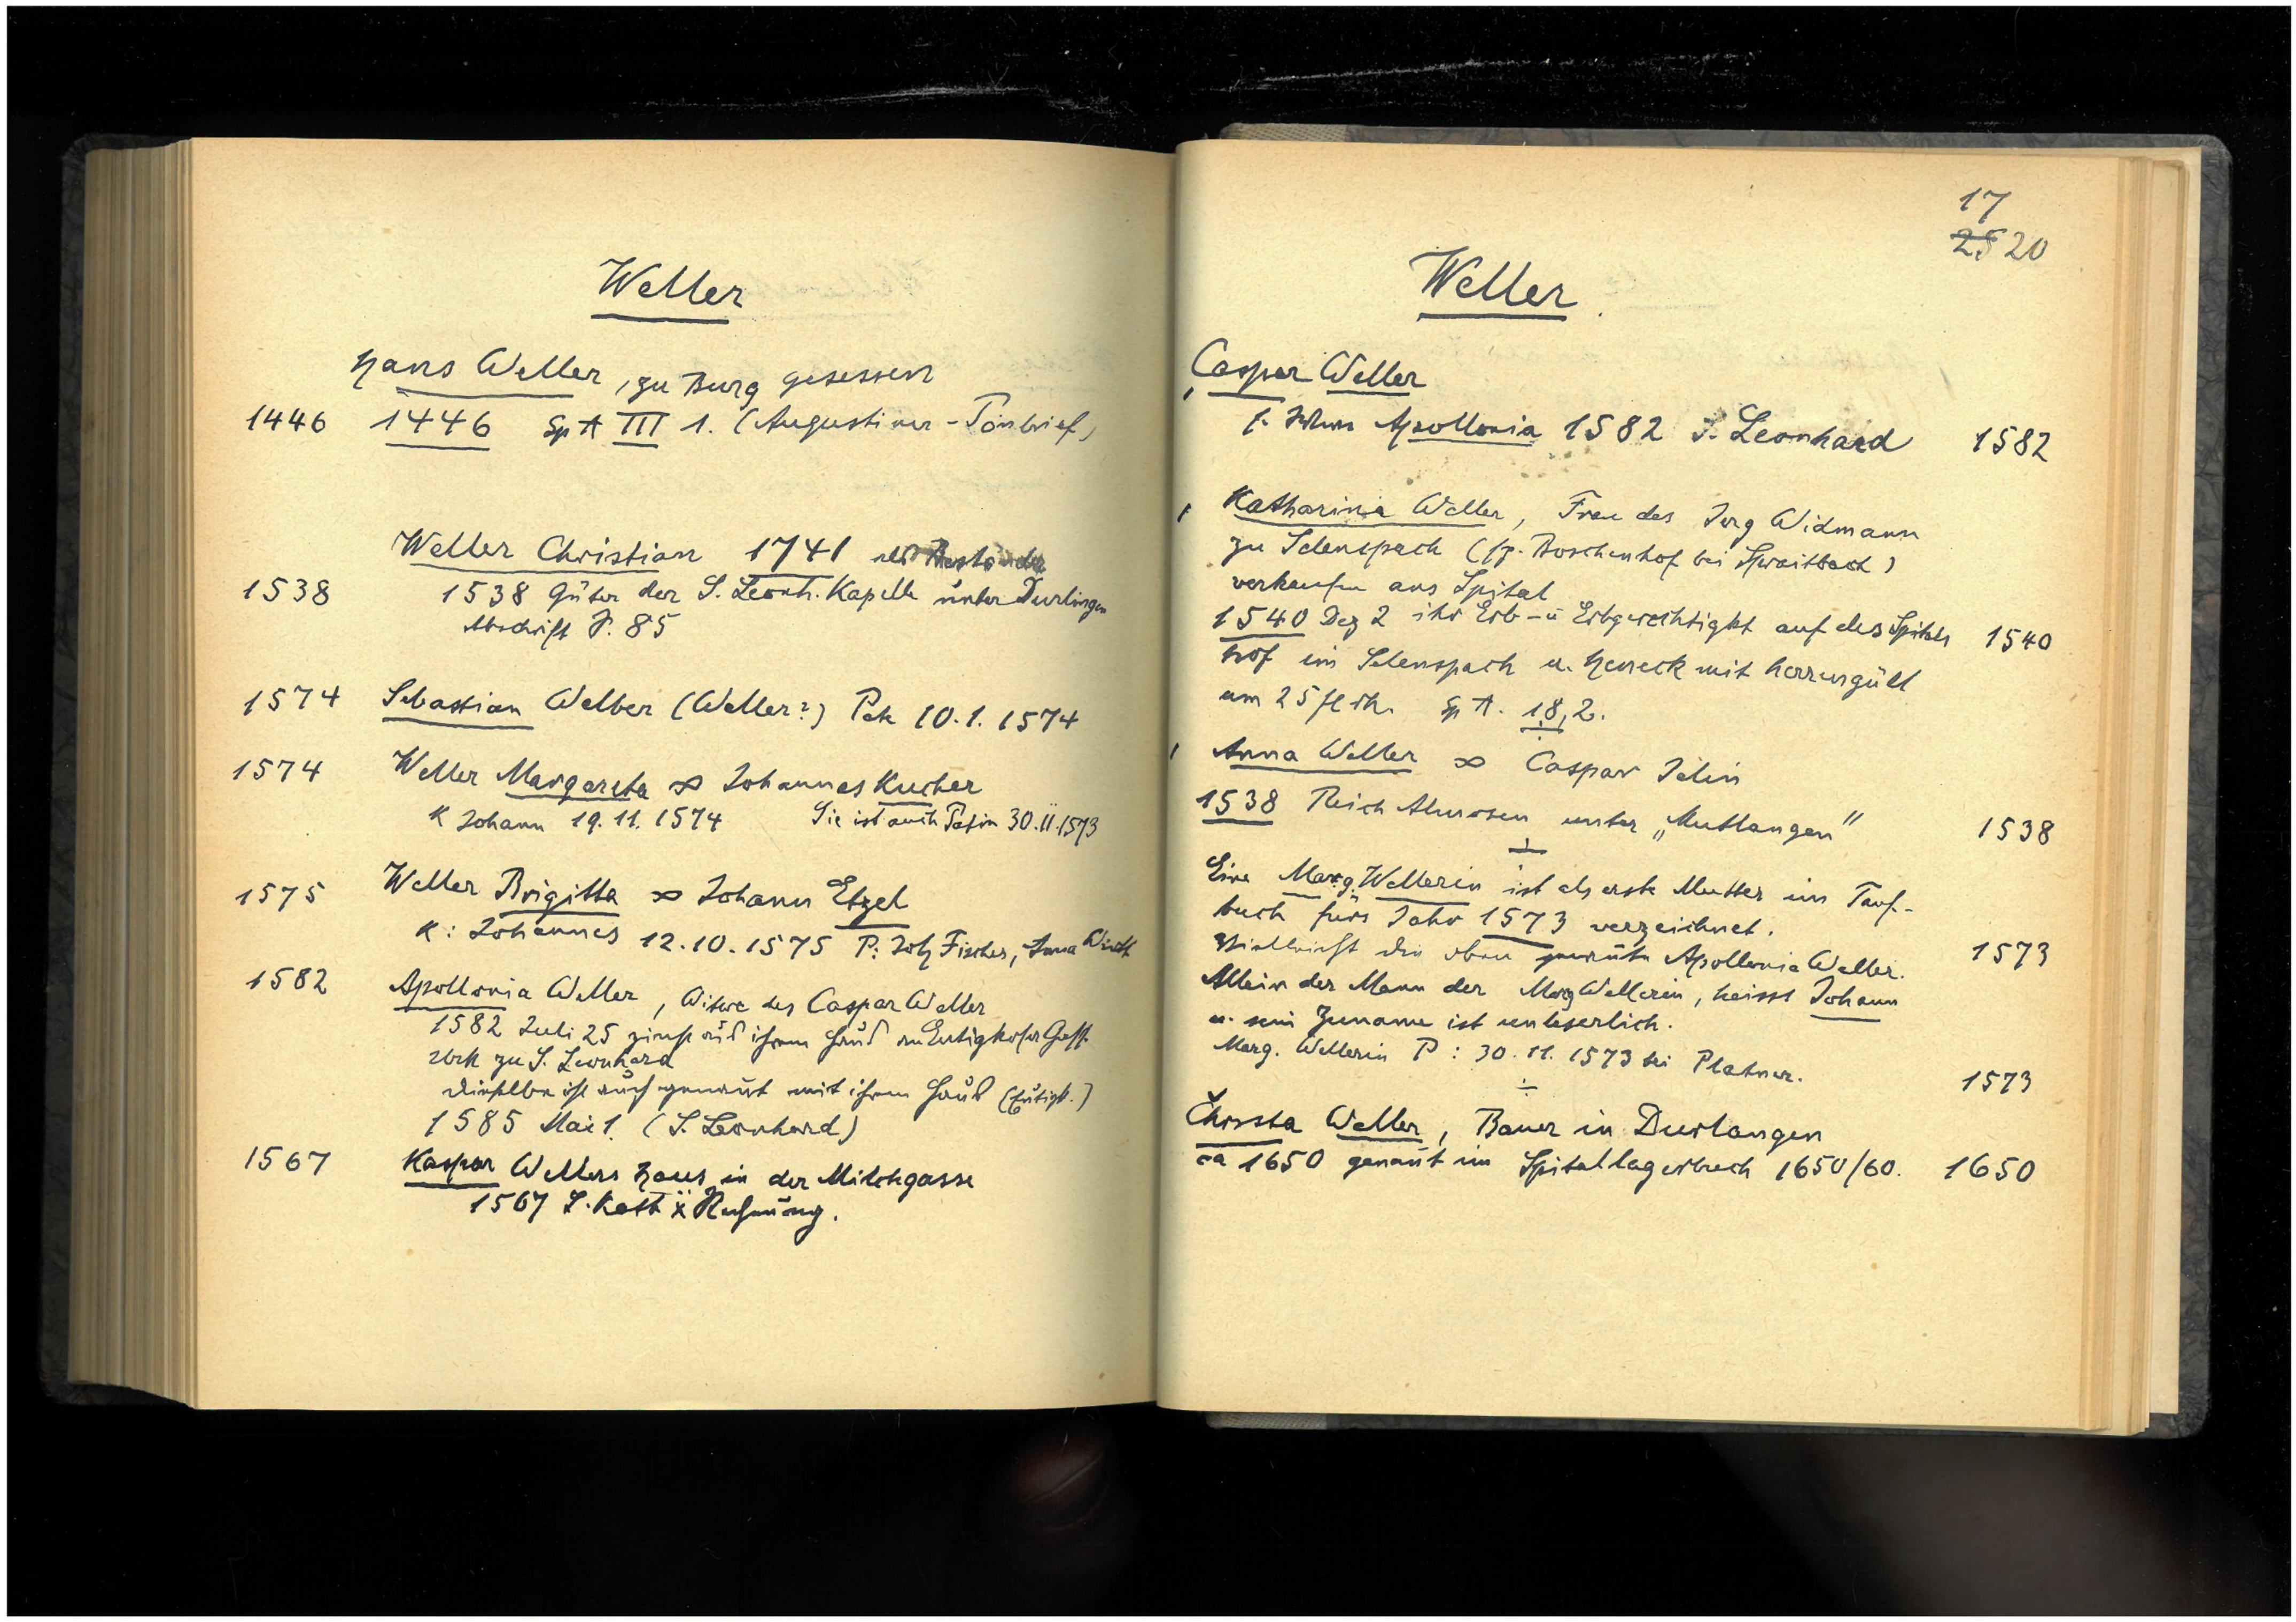 Weller
Hans Weller, zu Burg gesessen
1446 1446 Sp A III 1. (Augustiner-Tönbrief)
Weller Christian 1741 als
1538 1538 Güter der S. Leonh. Kapelle unter Durlingen
Abschrift S. 85
1574 Sebastian Welber (Weller?) Pate 10.1.1574
1574 Weller Margareta ∞ Johannes Kucher
K Johann 19.11.1574 Sie ist auch Patin 30.11.1573
1575 Weller Brigitta ∞ Johann Etzel
K: Johannes 12.10.1575 P: Joh Fischer, Anna Wirth
1582 Apollonia Weller, Witwe des Caspar Weller
1582 Juli 25 zinst aus ihrem Haus Eutigkofer Gass
zu S. Leonhard
Dieselbe ist auch genannt mit ihrem Haus (Eutigk.)
1585 Mai 1. (S. Leonhard)
1567 Kaspar Wellers Haus in der Milchgasse
1567 S. Kath Rechnung.
17
25 20
Weller
Caspar Weller
s. Apollonia 1582 S. Leonhard 1582
Katharina Weller, Frau des Jerg Widmann
zu Selenspach (sp. Boschenhof bei Spraitbach)
verkaufen ans Spital
1540 Dez 2 ihr Erb- u Erbgerechtigkt auf des Spitals 1540
hof im Selenspach u. Heneck mit herrengült
um 25 fl rh. Sp A. 18,2.
Anna Weller ∞ Caspar Jelin
1538 Reich Almosen unter „Mutlangen" 1538
Eine Marg. Wellerin ist als erste Mutter im Tauf-
buch fürs Jahr 1573 verzeichnet.
Vielleicht die oben genannte Apollonia Weller. 1573
Allein der Mann der Marg Wellerin, heisst Johann
u. sein Zuname ist unleserlich.
Marg. Wellerin P: 30.11.1573 bei Platner. 1573
Christa Weller, Bauer in Durlangen
ca 1650 genannt im Spitallagerbuch 1650/60. 1650